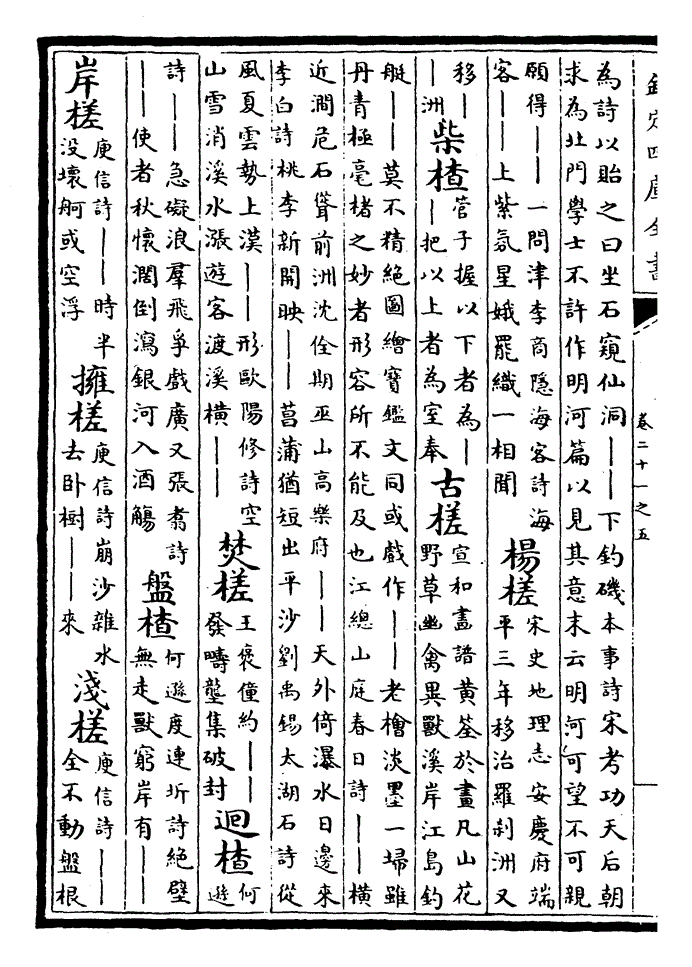 欽定四庫全書
卷二十一之五
為詩以貽之曰坐石窺仙洞——下釣磯本事詩宋考功天后朝
求為北門學士不許作明河篇以見其意末云明河可望不可親
願得——一問津李商隱海客詩海
客——上紫氛星娥罷織一相聞
楊槎
宋史地理志安慶府端
平三年移治羅刹洲又
移—
—洲
柴楂
管子握以下者為—
—把以上者為室奉
古槎
宣和畫譜黃筌於畫凡山花
野草幽禽異獸溪岸江島釣
艇——莫不精絕圖繪寶鑑文同或戲作——老檜淡墨一埽雖
丹青極毫楮之妙者形容所不能及也江總山庭春日詩——橫
近澗危石聳前洲沈佺期巫山高樂府——天外倚瀑水日邊來
李白詩桃李新開映——菖蒲猶短出平沙劉禹錫太湖石詩從
風夏雲勢上漢——形歐陽修詩空
山雪消溪水漲遊客渡溪橫——
焚槎
王褒僮約——
發疇壟集破封
迴楂
何
遜
詩——急礙浪羣飛爭戲廣又張翥詩
——使者秋懷濶倒瀉銀河入酒觴
盤楂
何遜度連圻詩絕壁
無走獸窮岸有——
岸槎
庾信詩——時半
没壞舸或空浮
擁槎
庾信詩崩沙雜水
去卧樹——來
淺槎
庾信詩——
全不動盤根